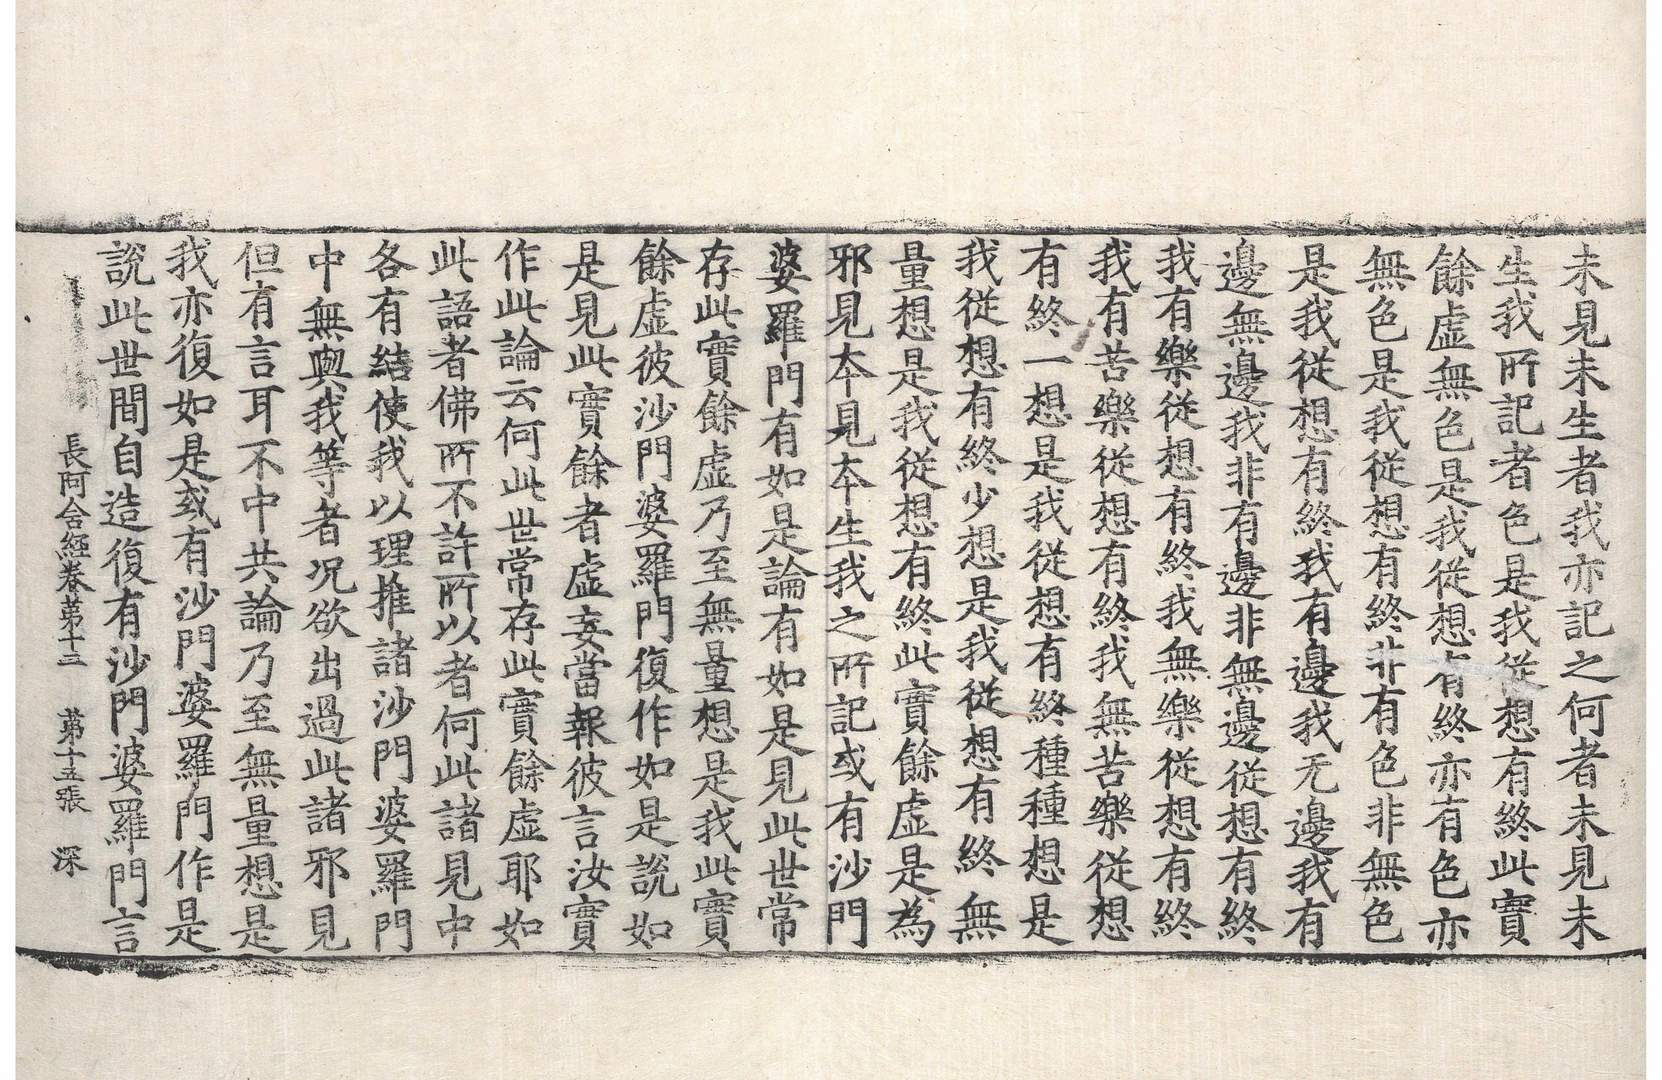 未見未生者我亦記之何者未見未
生我所記者色是我從想有終此實
餘虛無色是我從想有終亦有色亦
無色是我從想有終非有色非無色
是我從想有終我有邊我无邊我有
邊無邊我非有邊非無邊從想有終
我有樂從想有終我無樂從想有終
我有苦樂從想有終我無苦樂從想
有終一想是我從想有終種種想是
我從想有終少想是我從想有終無
量想是我從想有終此實餘虛是為
邪見本見本生我之所記或有沙門
婆羅門有如是論有如是見此世常
存此實餘虛乃至無量想是我此實
餘虛彼沙門婆羅門復作如是說如
是見此實餘者虛妄當報彼言汝實
作此論云何此世常存此實餘虛耶如
此語者佛所不許所以者何此諸見中
各有結使我以理推諸沙門婆羅門
中無與我等者况欲出過此諸邪見
但有言耳不中共論乃至無量想是
我亦復如是或有沙門婆羅門作是
說此世間自造復有沙門婆羅門言
長阿含經卷第十三 第十五張 深